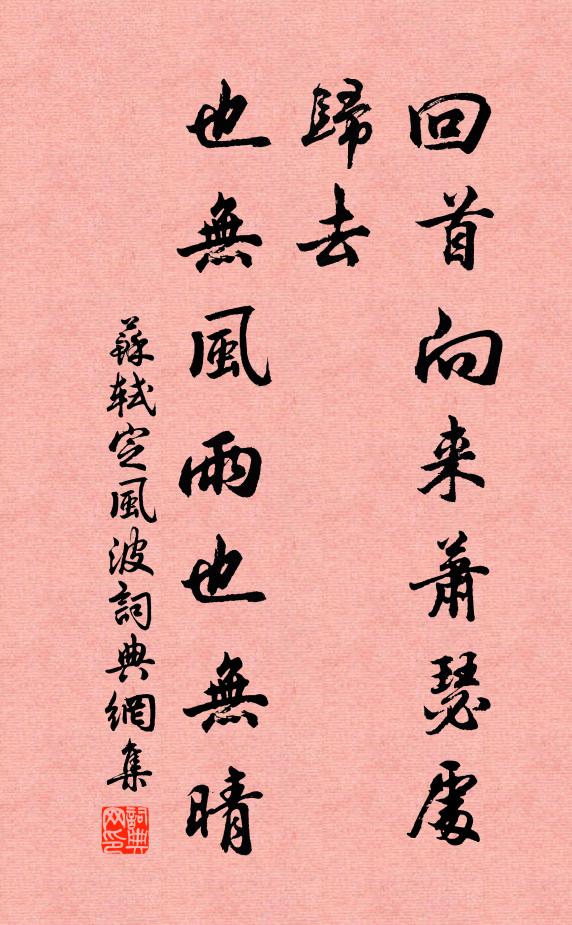 回首向来蕭瑟處
歸去
也無風雨也無晴
蘇軾定風波詞典網集
詞典网印